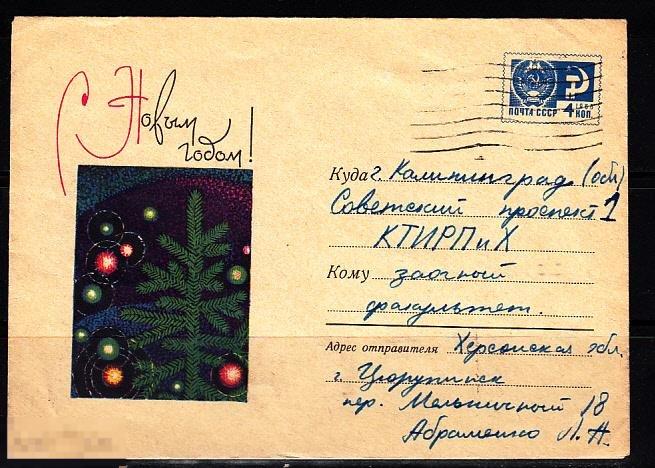 С Новым
годом!
ПОЧТА СССР 4 КОП.
1966
Куда г. Калининград (обл)
Советский проспект 1
КТИРПиХ
Кому заочный
факультет.
Адрес отправителя Херсонская обл.
г. Цюрупинск
пер. Мельничный 18
Абраменко Л. А.